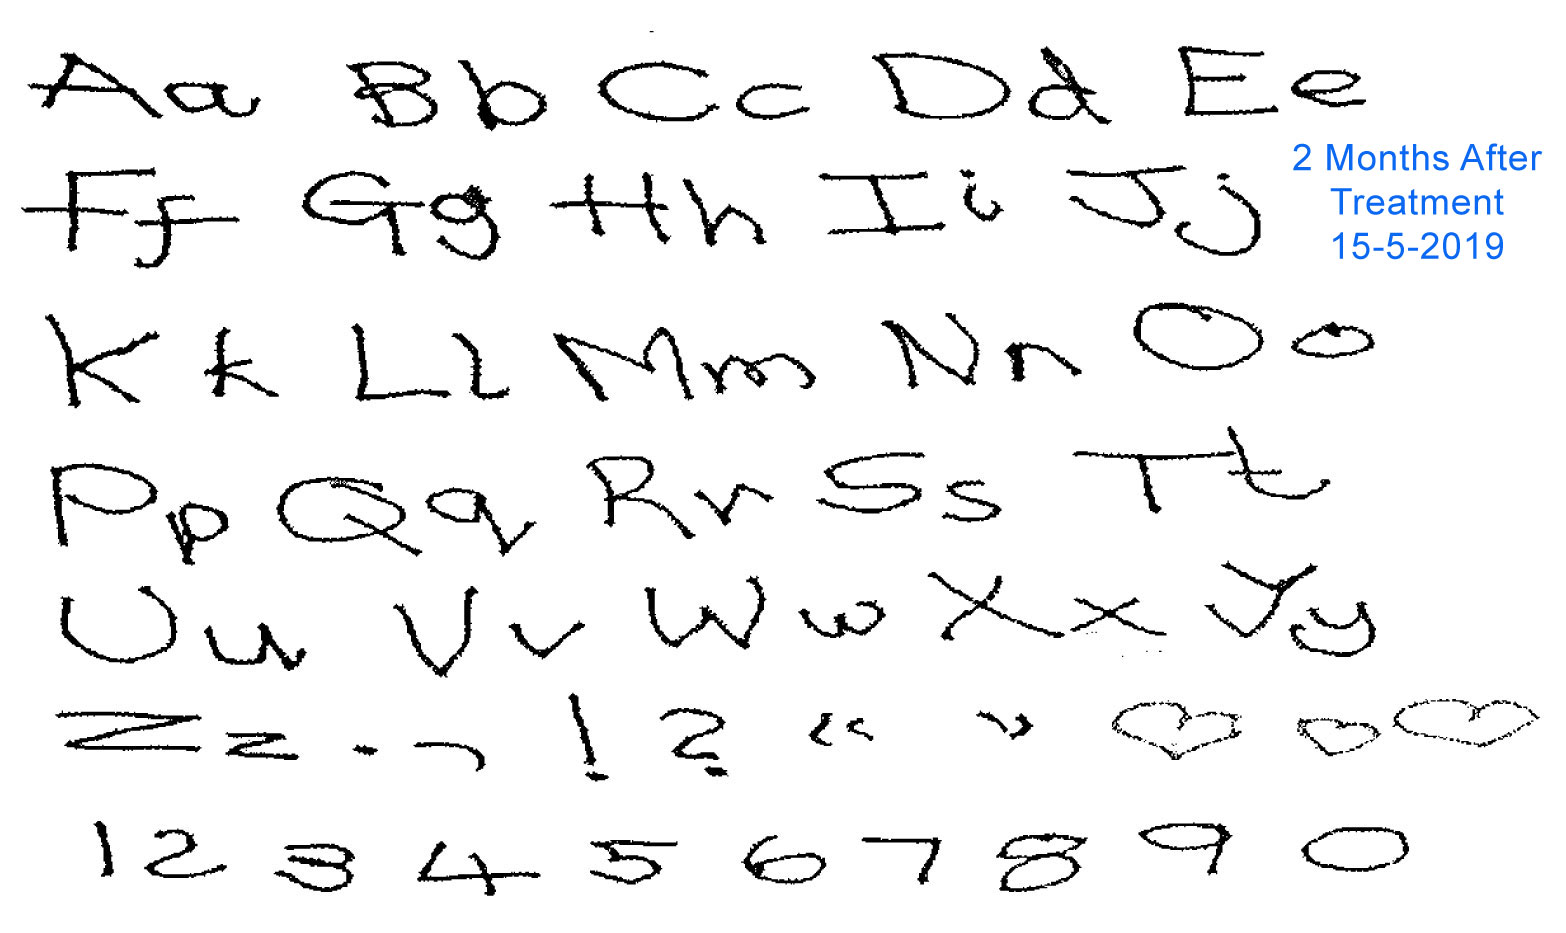 Aa Bb Cc Dd Ee
2 Months After
Treatment
15-5-2019
Ff Gg Hh Ii Jj
Kk Ll Mm Nn Oo
Pp Qq Rr Ss Tt
Uu Vv Ww Xx Yy
Zz . , ! ? “ ”
1 2 3 4 5 6 7 8 9 0